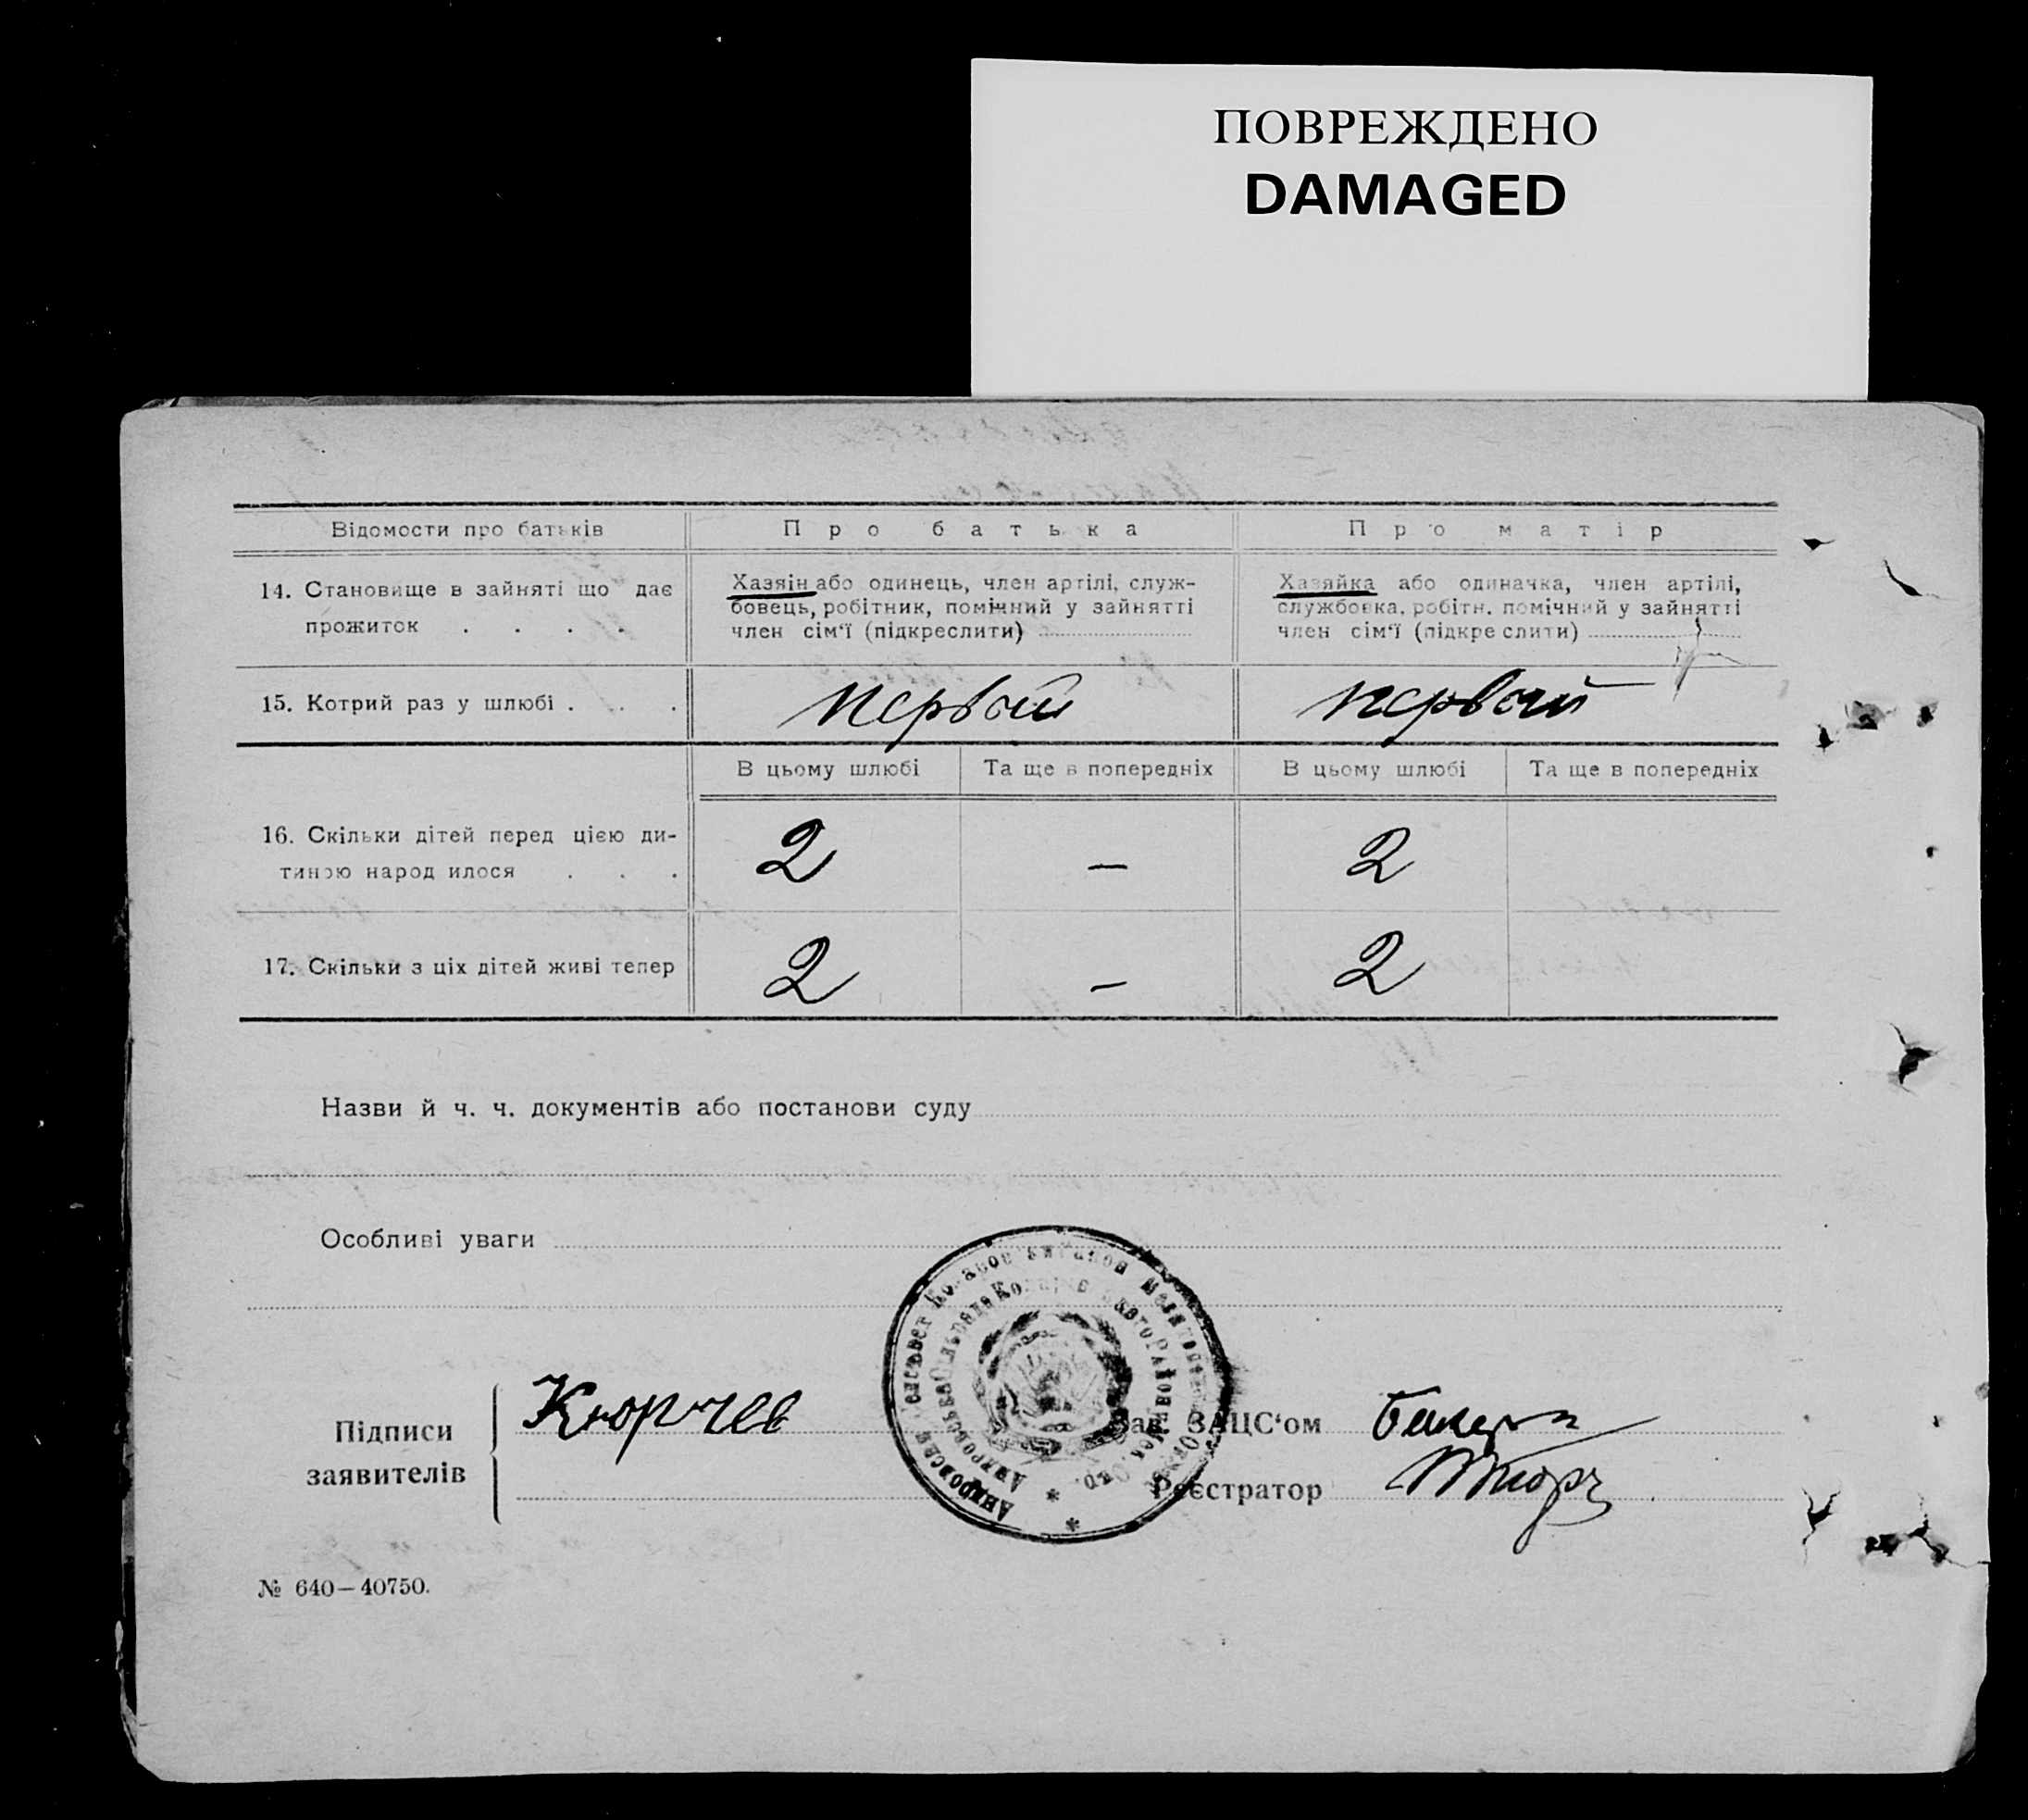 ПОВРЕЖДЕНО
DAMAGED
Відомости про батьків
Про батька
Про матір
14. Становище в зайняті що дає
прожиток . . . .
Хазяін або одинець, член артілі, служ-
бовець, робітник, помічний у зайнятті
член сім‘ї (підкреслити)
Хазяйка або одиначка, член артілі,
службовка, робітн. помічний у зайнятті
член сім‘ї (підкреслити)
15. Котрий раз у шлюбі . . .
первый
первый
В цьому шлюбі
Та ще в попередніх
В цьому шлюбі
Та ще в попередніх
16. Скільки дітей перед цією ди-
тиною народилося . . .
2
—
2
17. Скільки з ціх дітей живі тепер
2
—
2
Назви й ч. ч. документів або постанови суду
Особливі уваги
Підписи
заявителів
Кюрчев
Зав. ЗАЦС‘ом
Реєстратор
№ 640—40750.